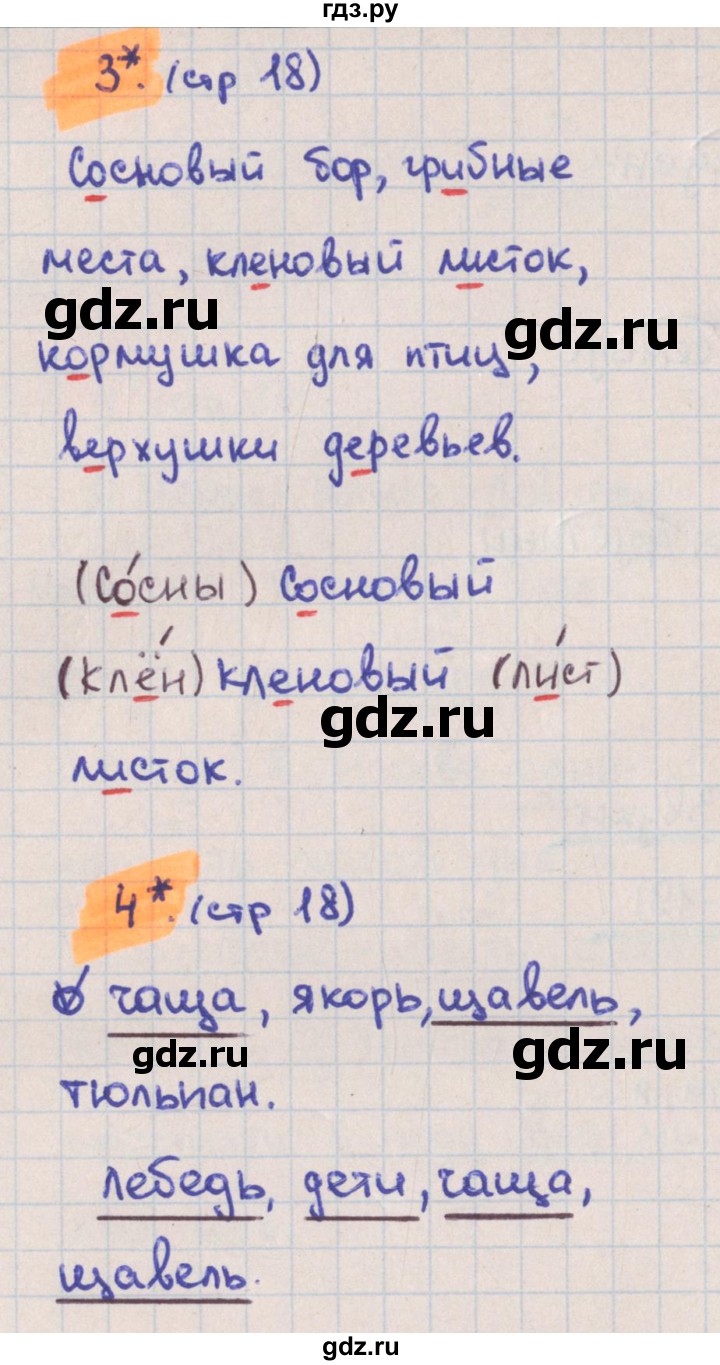 гдз.ру
3*. (стр 18)
Сосновый бор, грибные
места, кленовый листок,
gdz.ru
gdz.ru
кормушка для птиц,
верхушки деревьев.
(Со́сны) Сосновый
(Клён) кленовый (ли́ст)
gdz.ru
листок.
4*. (стр 18)
чаща, якорь, щавель,
gdz.ru
gdz.ru
тюльпан.
лебедь, дети, чаща,
щавель.
gdz.ru